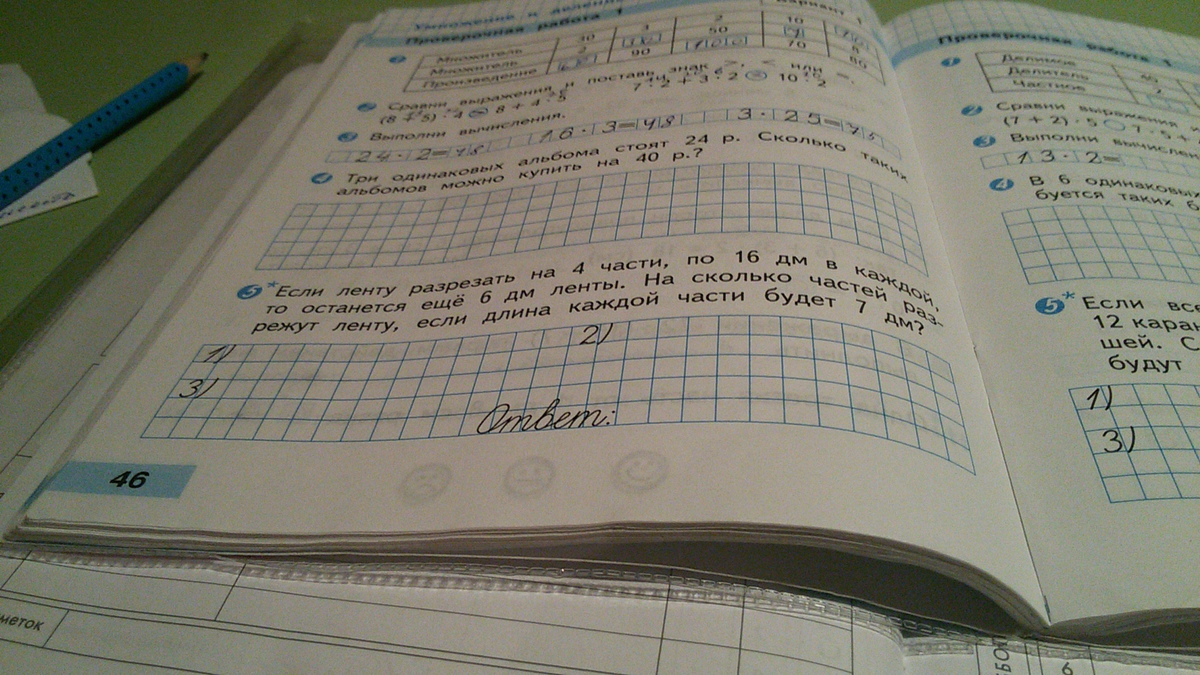 Умножение и делени
Вариант 1
Проверочная работа 1
Множитель 30 3 2 10
Множитель 2 50 5
Произведение 90 70 80
2 Сравни выражения и поставь знак >, < или =.
(8 + 5) · 4 8 + 4 · 5 7 · 2 + 3 · 2 10 · 2
3 Выполни вычисления.
24 · 2=48 16 · 3=48 3 · 25=75
4 Три одинаковых альбома стоят 24 р. Сколько таких
альбомов можно купить на 40 р.?
5* Если ленту разрезать на 4 части, по 16 дм в каждой,
то останется ещё 6 дм ленты. На сколько частей раз-
режут ленту, если длина каждой части будет 7 дм?
1) 2)
3)
Ответ:
46
Проверочная работа 1
1 Делимое
Делитель
Частное
2 Сравни выражения
(7 + 2) · 5 7 · 5 +
3 Выполни вычислен
13 · 2=
4 В 6 одинаковых
буется таких б
5* Если все
12 каран
шей. С
будут
1)
3)
меток
6